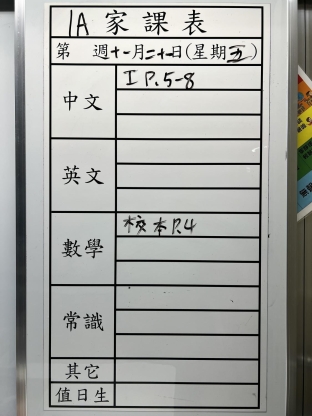 1A 家課表
第 週十一月二十一日(星期五)
中文
工 P.5-8
英文
數學
校本 P.4
常識
其它
值日生